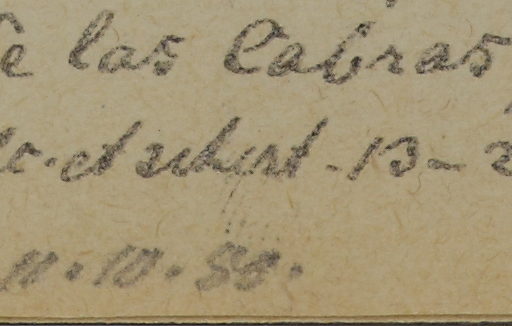 de las Cabras,
et scherf - 13 -
11.10.58.